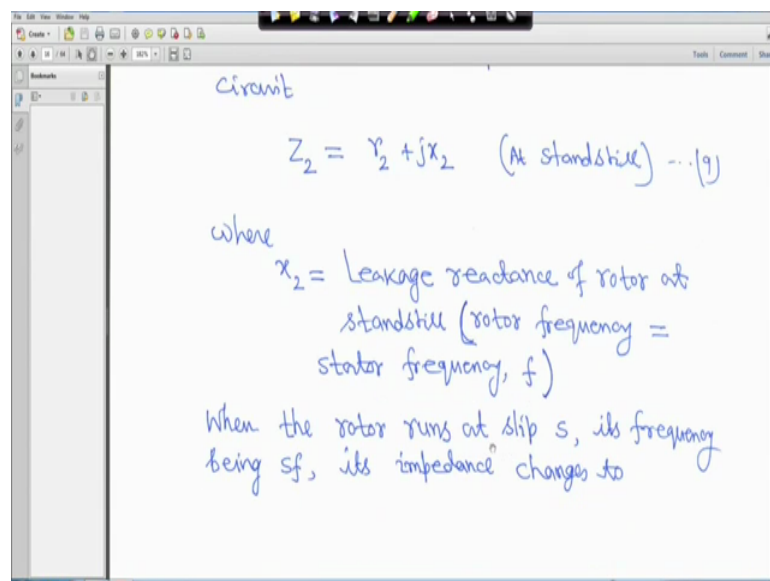 File Edit View Window Help
Create
182%
Tools Comment
Bookmarks
circuit
Z₂ = r₂ + jx₂ (At standstill) ...(9)
where
x₂ = Leakage reactance of rotor at
standstill (rotor frequency =
stator frequency, f)
When the rotor runs at slip s, its frequency
being sf, its impedance changes to